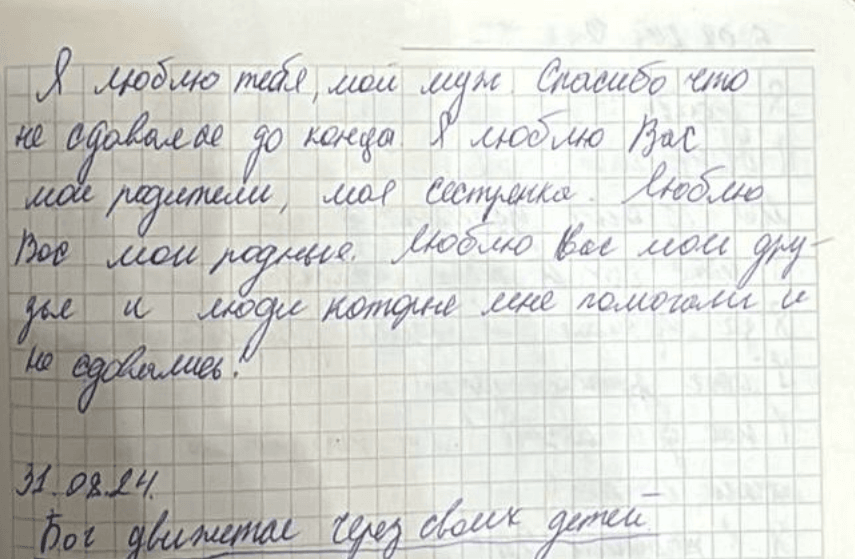 Я люблю тебя, мой муж. Спасибо что
не сдавался до конца. Я люблю Вас
мои родители, моя сестренка. Люблю
Вас мои родные. Люблю Вас мои дру-
зья и люди которые мне помогали и
не сдавались!
31.08.24.
Бог движется через своих детей